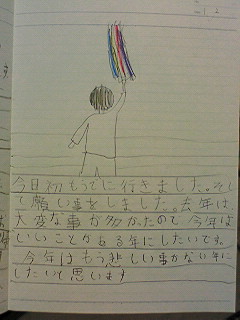 今日初もうでに行きました。そし
て願い事をしました。去年は
大変な事が多かたので今年は
いいことがある年にしたいです。
今年はもう悲しい事がない年に
したいと思います